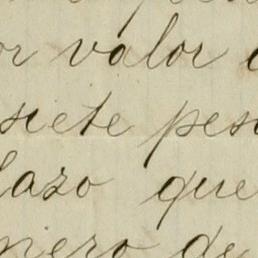 or valor
siete pes
lazo que
nero de